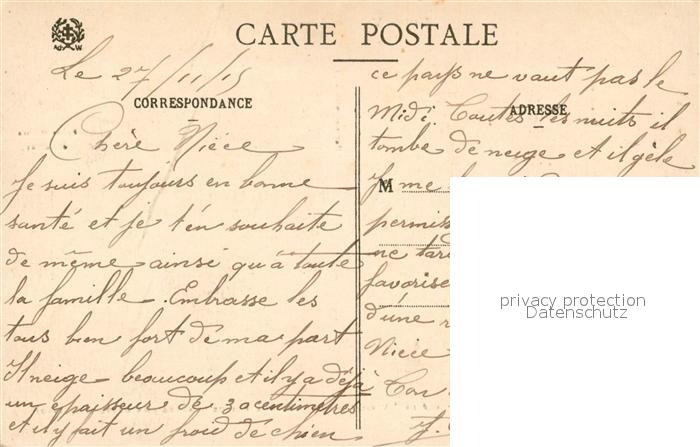 CARTE POSTALE
Le 27/11/15
CORRESPONDANCE
Chère Nièce
Je suis toujours en bonne
santé et je t'en souhaite
de même ainsi qu'à toute
la famille. Embrasse les
tous bien fort de ma part
Il neige beaucoup et il y a déjà
un épaisseur de 30 centimètres
et il fait un froid de chien
ce pays ne vaut pas le
Midi. Toutes les nuits il
ADRESSE
tombe de neige et il gèle
M
Je me
permiss
ne tar
favorise
d'une
Nièce
Ton
J.
privacy protection
Datenschutz